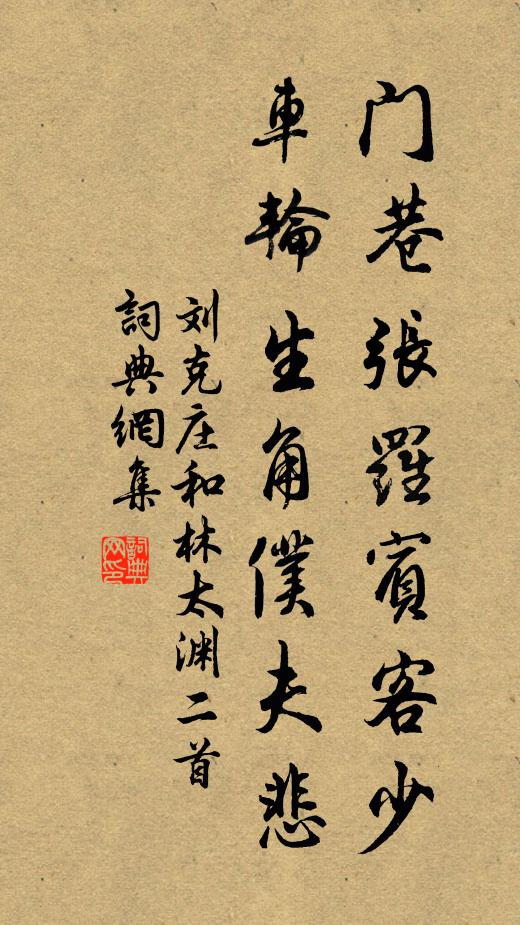 門巷張羅賓客少
車輪生角僕夫悲
刘克庄和林太渊二首
詞典網集
詞典
网印